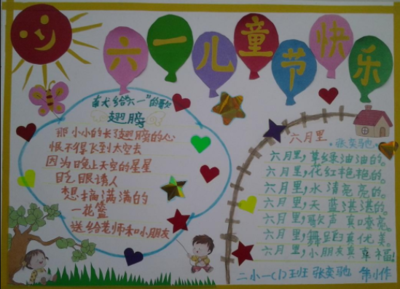 六一儿童节快乐
翅膀
那小小的长翅膀的心
恨不得飞到太空去
因为晚上天空的星星
眨眼诱人
想摘满满的
一花篮
送给老师和小朋友
六月里
六月里,草绿油油的。
六月里,花红艳艳的。
六月里,水清亮亮的。
六月里,天蓝湛湛的。
六月里,歌声真嘹亮。
六月里,舞蹈真优美。
六月里,小朋友真幸福
二小一(1)班